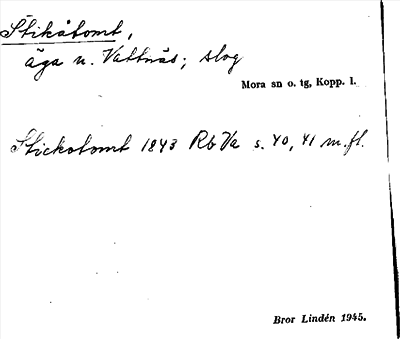 Stikåtomt,
äga u. Vattnäs; slog
Mora sn o. tg, Kopp. l.
Stickotomt 1843 Rb Va s. 40, 41 m. fl.
Bror Lindén 1945.